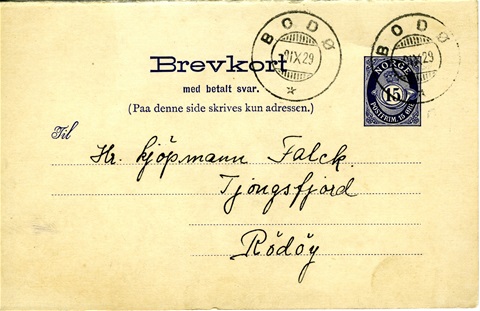 BODØ
BODØ
Brevkort
NORGE
med betalt svar.
15
(Paa denne side skrives kun adressen.)
POSTFRIM. 15 ØRE
Til
Hr. kjöpmann Falck.
Tjongsfjord
Rödöy